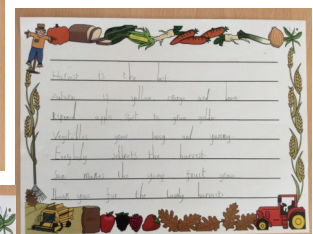 Harvest is the best
Nature is yellow orange and brown
apple start to grow
Vegetables grow big and yummy
Everybody collects the harvest
Sun makes the young fruit grow
Thank you for the lovely harvest